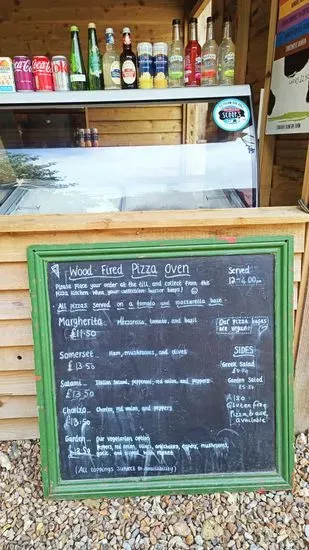 Coca-Cola
SCOOPS
Wood Fired Pizza Oven
Served
12-4.00pm
Please Place your order at the till, and collect from the
Pizza kitchen when your collection buzzer beeps! ☺
All pizzas served on a tomato and mozzarella base.
Margherita. Mozzarella, tomato, and basil
£11.50
Our Pizza bases
are organic!
Somerset... Ham, mushrooms, and olives
£13.50
Salami... Italian salami, pepperoni, red onion, and peppers
£13.50
Chorizo... Chorizo, red onion, and peppers
£13.50
Garden... Our vegetarian option
£12.50
Peppers, red onion, olives, mushrooms,
garlic, and topped with rocket
(All toppings subject to availability)
SIDES
Greek Salad
Garden Salad
Also
Gluten Free
Pizza base
available